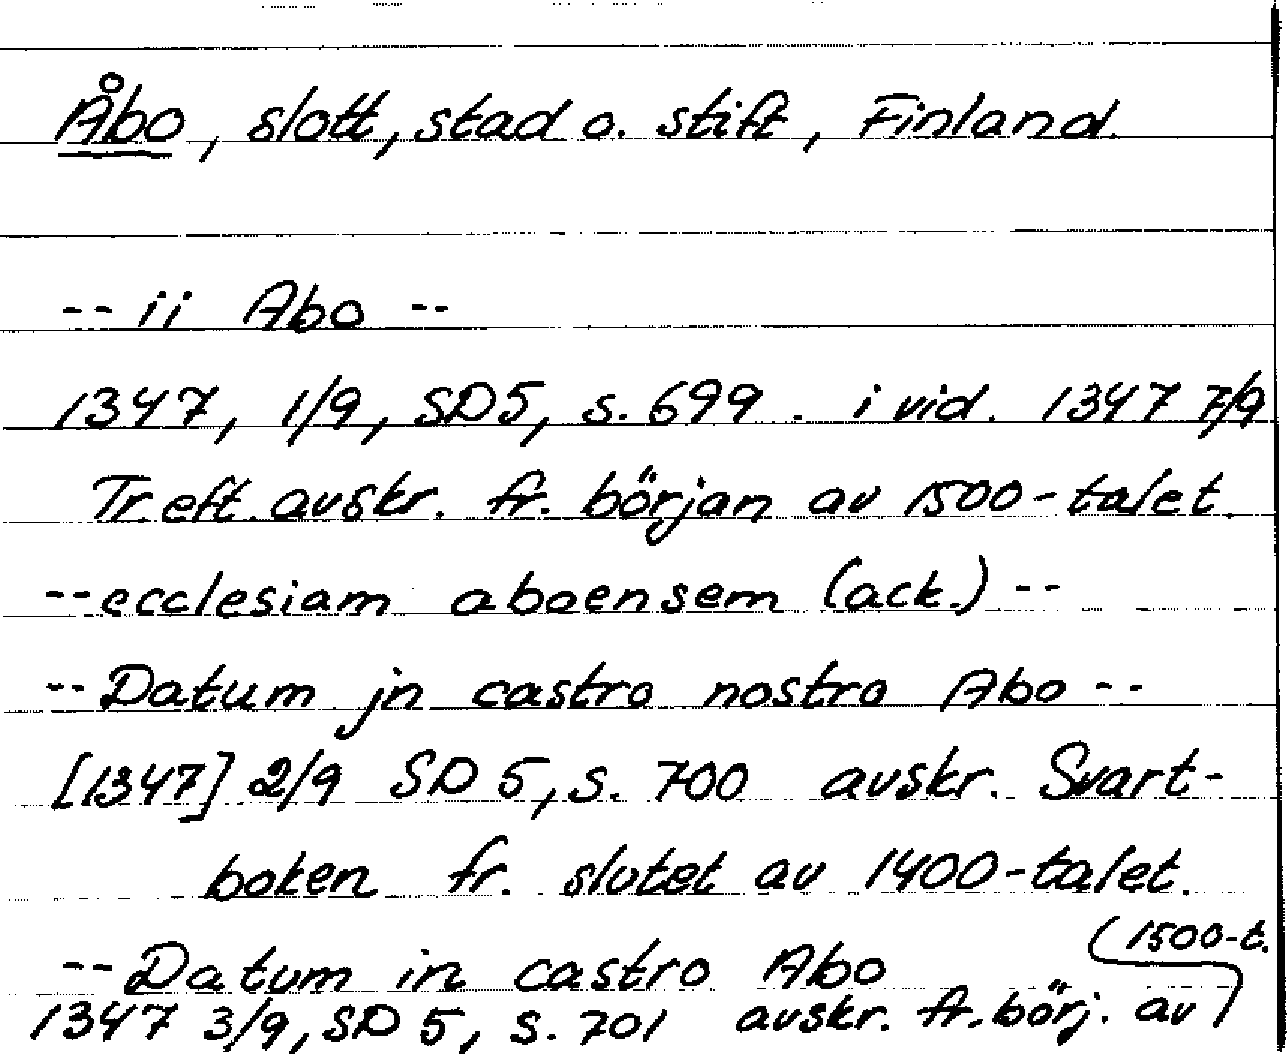 Åbo, slott, stad o. stift, Finland.
-- ii Abo --
1347, 1/9, SD5, s. 699. i vid. 1347 7/9
Tr. eft. avskr. fr. början av 1500-talet.
-- ecclesiam aboensem (ack.) --
-- Datum jn castro nostro Abo --
[1347] 2/9 SD 5, s. 700 avskr. Svart-
boken fr. slutet av 1400-talet.
-- Datum in castro Abo
1347 3/9, SD 5, s. 701 avskr. fr. börj. av
1500-t.